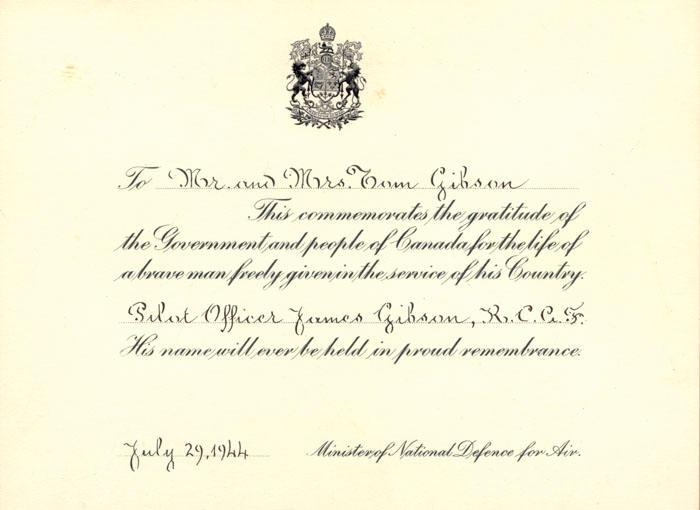 To Mr. and Mrs. Tom Gibson
This commemorates the gratitude of
the Government and people of Canada for the life of
a brave man freely given in the service of his Country.
Pilot Officer James Gibson, R.C.A.F.
His name will ever be held in proud remembrance.
July 29, 1944 Minister of National Defence for Air.